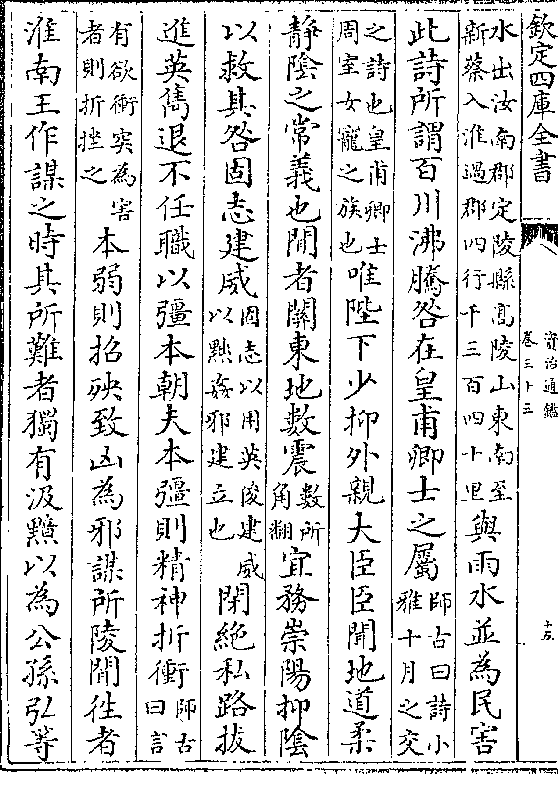 欽定四庫全書
資治通鑑
卷三十三
十五
水出汝南郡定陵縣高陵山東南至
新蔡入淮過郡四行千三百四十里
與雨水並為民害
此詩所謂百川沸騰咎在皇甫卿士之屬
師古曰詩小
雅十月之交
之詩也皇甫卿士
周室女寵之族也
唯陛下少抑外親大臣臣聞地道柔
靜陰之常義也閒者關東地數震
數所
角翻
宜務崇陽抑陰
以救其咎固志建威
固志以用英俊建威
以黜姦邪建立也
閉絕私路拔
進英雋退不任職以彊本朝夫本彊則精神折衝
師古
曰言
有欲衝突為害
者則折挫之
本弱則招殃致凶為邪謀所陵聞往者
淮南王作謀之時其所難者獨有汲黯以為公孫弘等